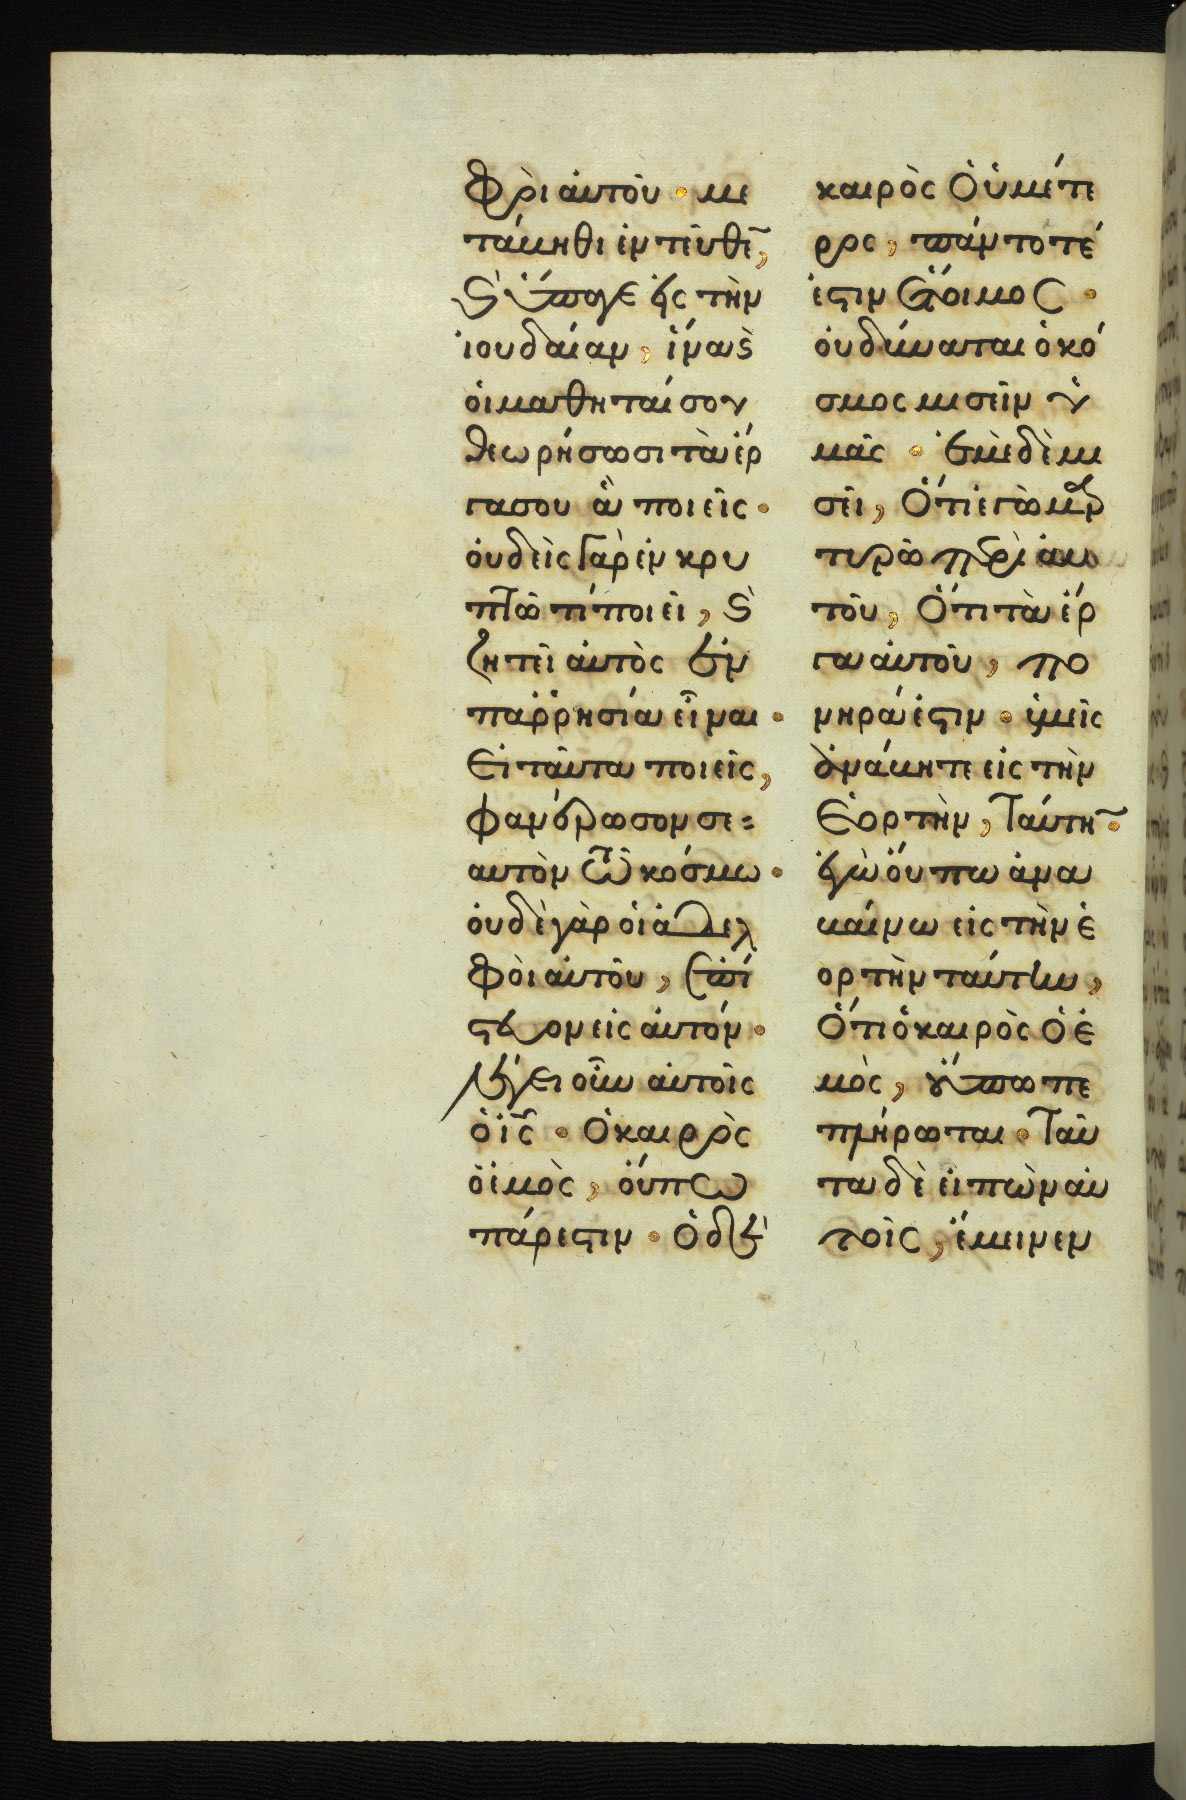 φοὶ αὐτοῦ · με
τάβηθι ἐντεῦθε̃,
ϗ̀ ὕπαγε εἰς τὴν
ἰουδαίαν, ἵνα ϗ̀
οἱ μαθηταί σου
θεωρήσωσι τὰ ἔρ
γα σου ἃ ποιεῖς ·
οὐδεὶς γὰρ ἐν κρυ
πτῶ τί ποιεῖ, ϗ̀
ζητεῖ αὐτὸς ἐν
παῤῥησία εἶναι ·
εἰ ταῦτα ποιεῖς,
φανέρωσον σε=
αυτὸν τῶ κόσμω ·
οὐδὲ γὰρ οἱ ἀδελ
φοὶ αὐτοῦ, ἐπί
στευον εἰς αὐτόν ·
λέγει οὖν αὐτοῖς
ὁ ἰς̃ · ὁ καιρὸς
ὁ ἐμὸς, οὔπω
πάρεστιν · ὁ δὲ
καιρὸς ὁ ὑμέτε
ρος, πάντοτέ
ἐστιν ἕτοιμος ·
οὐ δύναται ὁ κό
σμος μισεῖν ὑ
μᾶς · ἐμὲ δὲ μι
σεῖ, ὅτι ἐγὼ μαρ
τυρῶ περὶ αὐ
τοῦ, ὅτι τὰ ἔρ
γα αὐτοῦ, πο
νηρά ἐστιν · ὑμεῖς
ἀνάβητε εἰς τὴν
ἑορτὴν, ταύτη̃ ·
ἐγὼ οὔπω ἀνα
βαίνω εἰς τὴν ἑ
ορτὴν ταύτην,
ὅτι ὁ καιρὸς ὁ ἐ
μὸς, οὔπω πε
πλήρωται · ταῦ
τα δὲ εἰπὼν αὐ
τοῖς, ἔμεινεν